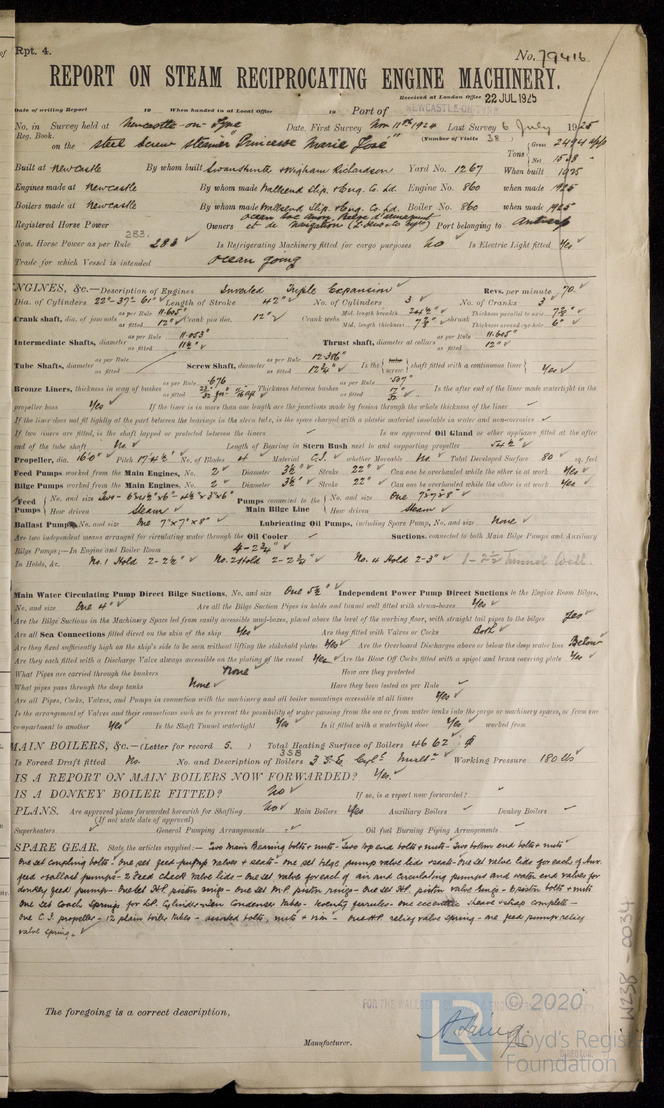 Rpt. 4.
No. 79416
REPORT ON STEAM RECIPROCATING ENGINE MACHINERY.
Received at London Office 22 JUL 1925
Date of writing Report 19 When handed in at Local Office 19 Port of NEWCASTLE-ON-TYNE
No. in Survey held at Newcastle-on-Tyne Date, First Survey Nov 11th 1924 Last Survey 6 July 1925
Reg. Book. (Number of Visits 38)
on the steel screw steamer "Princesse Marie José" Tons Gross
Net
Built at Newcastle By whom built Swan Hunter & Wigham Richardson Yard No. 1267 When built 1925
Engines made at Newcastle By whom made Wallsend Slip. & Eng. Co. Ld. Engine No. 860 when made 1925
Boilers made at Newcastle By whom made Wallsend Slip. & Eng. Co. Ld. Boiler No. 860 when made 1925
Registered Horse Power Owners Port belonging to Antwerp
Nom. Horse Power as per Rule 283 Is Refrigerating Machinery fitted for cargo purposes No Is Electric Light fitted Yes
Trade for which Vessel is intended Ocean going
ENGINES, &c.—Description of Engines Inverted Triple Expansion Revs. per minute 70
Dia. of Cylinders 22"-37"-61" Length of Stroke 42" No. of Cylinders 3 No. of Cranks 3
Crank shaft, dia. of journals as per Rule 11.605" as fitted 12" Crank pin dia. 12" Crank webs Mid. length breadth Mid. length thickness Thickness parallel to axis Thickness around eye-hole 6"
Intermediate Shafts, diameter as per Rule 11.053 as fitted 11½" Thrust shaft, diameter at collars as per Rule 11.605" as fitted 12"
Tube Shafts, diameter as per Rule as fitted Screw Shaft, diameter as per Rule as fitted 12¾" Is the screw shaft fitted with a continuous liner Yes
Bronze Liners, thickness in way of bushes as per Rule .676 as fitted Thickness between bushes as per Rule .507 as fitted Is the after end of the liner made watertight in the
propeller boss Yes If the liner is in more than one length are the junctions made by fusion through the whole thickness of the liner
If the liner does not fit tightly at the part between the bearings in the stern tube, is the space charged with a plastic material insoluble in water and non-corrosive
If two liners are fitted, is the shaft lapped or protected between the liners Is an approved Oil Gland or other appliance fitted at the after
end of the tube shaft No Length of Bearing in Stern Bush next to and supporting propeller 54½"
Propeller, dia. 16'0" Pitch 17'4½" No. of Blades 4 Material C.I. whether Moveable No Total Developed Surface 80 sq. feet
Feed Pumps worked from the Main Engines, No. 2 Diameter 3½" Stroke 22" Can one be overhauled while the other is at work Yes
Bilge Pumps worked from the Main Engines, No. 2 Diameter 3½" Stroke 22" Can one be overhauled while the other is at work Yes
Feed Pumps No. and size How driven Steam Pumps connected to the Main Bilge Line No. and size One 7"x7"x8" How driven Steam
Ballast Pumps, No. and size One 7"x7"x8" Lubricating Oil Pumps, including Spare Pump, No. and size None
Are two independent means arranged for circulating water through the Oil Cooler Suctions, connected to both Main Bilge Pumps and Auxiliary
Bilge Pumps;—In Engine and Boiler Room 4-2¾"
In Holds, &c. No. 1 Hold 2-2½" No. 2 Hold 2-2¾" No. 4 Hold 2-3" 1-2½ Tunnel Well.
Main Water Circulating Pump Direct Bilge Suctions, No. and size One 5½" Independent Power Pump Direct Suctions to the Engine Room Bilges,
No. and size One 4" Are all the Bilge Suction Pipes in holds and tunnel well fitted with strum-boxes Yes
Are the Bilge Suctions in the Machinery Space led from easily accessible mud-boxes, placed above the level of the working floor, with straight tail pipes to the bilges Yes
Are all Sea Connections fitted direct on the skin of the ship Yes Are they fitted with Valves or Cocks Both
Are they fixed sufficiently high on the ship's side to be seen without lifting the stokehold plates Yes Are the Overboard Discharges above or below the deep water line Below
Are they each fitted with a Discharge Valve always accessible on the plating of the vessel Yes Are the Blow Off Cocks fitted with a spigot and brass covering plate Yes
What Pipes are carried through the bunkers None How are they protected
What pipes pass through the deep tanks None Have they been tested as per Rule
Are all Pipes, Cocks, Valves, and Pumps in connection with the machinery and all boiler mountings accessible at all times Yes
Is the arrangement of Valves and their connections such as to prevent the possibility of water passing from the sea or from water tanks into the cargo or machinery spaces, or from one
compartment to another Yes Is the Shaft Tunnel watertight Yes Is it fitted with a watertight door Yes worked from
MAIN BOILERS, &c.—(Letter for record S.) Total Heating Surface of Boilers 4662
Is Forced Draft fitted No. No. and Description of Boilers 3 S.E. Cyl. Mult. Working Pressure 180 lbs
IS A REPORT ON MAIN BOILERS NOW FORWARDED? Yes.
IS A DONKEY BOILER FITTED? No If so, is a report now forwarded?
PLANS. Are approved plans forwarded herewith for Shafting No Main Boilers Yes Auxiliary Boilers Donkey Boilers
(If not state date of approval)
Superheaters General Pumping Arrangements Oil fuel Burning Piping Arrangements
SPARE GEAR. State the articles supplied:— Two Main Bearing bolts & nuts - Two top end bolts & nuts - Two bottom end bolts & nuts
One set coupling bolts - One set feed pump valves & seats - one set bilge pump valve lids & seats - One set valve lids for each of Aux.
feed & ballast pumps - 2 Feed check valve lids - One set valves for each of air and circulating pumps and water end valves for
donkey feed pumps - One set H.P. piston rings - one set M.P. piston rings - One set H.P. piston valve rings - 6 piston bolts & nuts
One set Coach Springs for L.P. Cylinder - Ten Condenser tubes - Twenty ferrules - One eccentric sheave & strap complete -
One C.I. propeller - 12 plain boiler tubes - assorted bolts, nuts & iron - One H.P. relief valve spring - one feed pump relief
valve spring.
The foregoing is a correct description,
Manufacturer.
© 2020
Lloyd's Register
Foundation
W238-0034